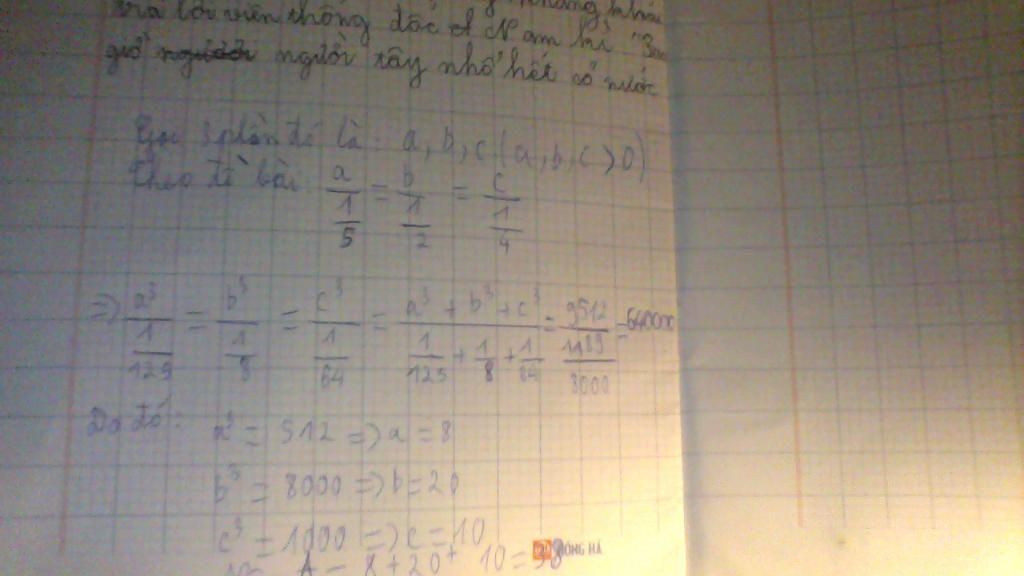 trả lời viên thống đốc ở Nam kì "Bao
giờ người xây nhổ hết cỏ nước
Gọi 3 phần đó là: a, b, c (a, b, c > 0)
Theo đề bài: a/(1/5) = b/(1/2) = c/(1/4)
=> a³/(1/125) = b³/(1/8) = c³/(1/64) = (a³ + b³ + c³)/(1/125 + 1/8 + 1/64) = 9512/(1189/8000) = 64000
Do đó: a³ = 512 => a = 8
b³ = 8000 => b = 20
c³ = 1000 => c = 10
A = 8 + 20 + 10 = 38
HỒNG HÀ